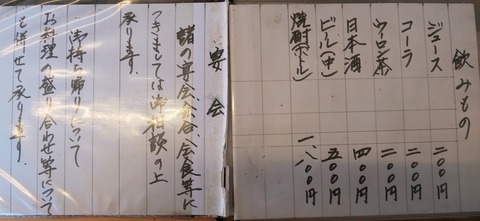 飲みもの
ジュース 二〇〇円
コーラ 二〇〇円
ウーロン茶 二〇〇円
日本酒 四〇〇円
ビール(中) 五〇〇円
焼酎ボトル 一、八〇〇円
宴会
諸の宴会、会合、会食等に
つきましては御相談の上
承ります。
御持ち帰りについて
お料理の盛り合わせ等について
も併せて承ります。